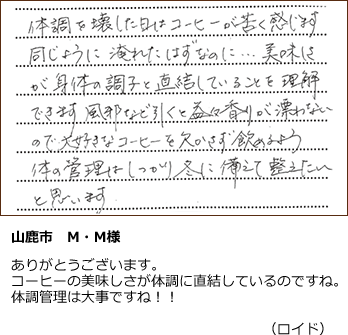 体調を壊した日はコーヒーが苦く感じます
同じように淹れたはずなのに…美味しさ
が身体の調子と直結していることを理解
できます 風邪など引くと益々香りが漂わない
ので大好きなコーヒーを欠かさず飲めるよう
体の管理はしっかり冬に備えて整えたい
と思います
山鹿市　M・M様
ありがとうございます。
コーヒーの美味しさが体調に直結しているのですね。
体調管理は大事ですね！！
（ロイド）